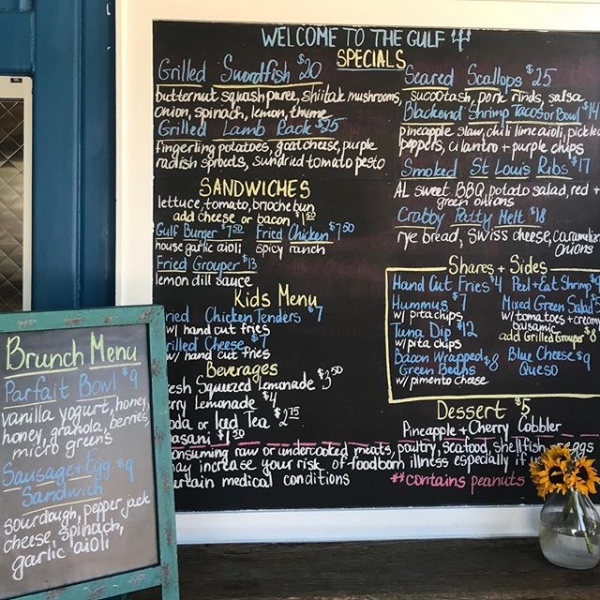 WELCOME TO THE GULF
SPECIALS
Grilled Swordfish $20
butternut squash puree, shiitak mushrooms,
onion, spinach, lemon, thyme
Grilled Lamb Rack $25
fingerling potatoes, goat cheese, purple
radish sprouts, sundried tomato pesto
Seared Scallops $25
sucotash, pork rinds, salsa
Blackend Shrimp Tacos or Bowl $14
pineapple slaw, chili lime aioli,
peppers, cilantro + purple chips
Smoked St Louis Ribs $17
AL sweet BBQ, potato salad, red +
green onions
Crabby Patty Melt $18
rye bread, swiss cheese, caramelized
onions
SANDWICHES
lettuce, tomato, brioche bun
add cheese or bacon $1.50
Gulf Burger $7.50 Fried Chicken $7.50
house garlic aioli spicy ranch
Fried Grouper $13
lemon dill sauce
Kids Menu
ried Chicken Tenders $7
w/ hand cut fries
rilled Cheese $7
w/ hand cut fries
Beverages
resh Squeezed Lemonade $3.50
rry Lemonade $4
oda or Iced Tea $2.75
asani $1.50
Shares + Sides
Hand Cut Fries $4 Peel + Eat Shrimp
Hummus $7 Mixed Green Salad
w/ pita chips w/ tomatoes + creamy
balsamic
Tuna Dip $12 add Grilled Grouper $8
w/ pita chips
Bacon Wrapped $8 Blue Cheese $9
Green Beans Queso
w/ pimento cheese
Dessert $5
Pineapple + Cherry Cobbler
onsuming raw or undercooked meats, poultry, seafood, shellfish eggs
ay increase your risk of foodborn illness especially if
ertain medical conditions
** contains peanuts
Brunch Menu
Parfait Bowl $9
vanilla yogurt, honey,
honey, granola, berries,
micro greens
Sausage + Egg $9
Sandwich
sourdough, pepper jack
cheese, spinach,
garlic aioli